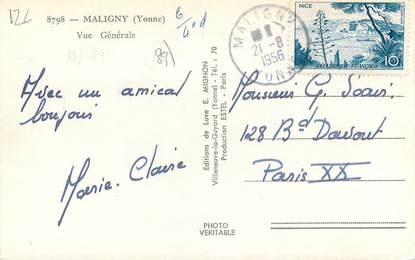 8798 - MALIGNY (Yonne)
Vue Générale
Avec un amical
bonjour
Marie-Claire
Editions de Luxe E. MIGNON
Villeneuve-la-Guyard (Yonne) - Tél. : 70
Production ESTEL - Paris
PHOTO
VERITABLE
MALIGNY
21-8
1956
YONNE
NICE
REPUBLIQUE FRANÇAISE
10F
Monsieur G. Soari
128 Bd Davout
Paris XX
(89)